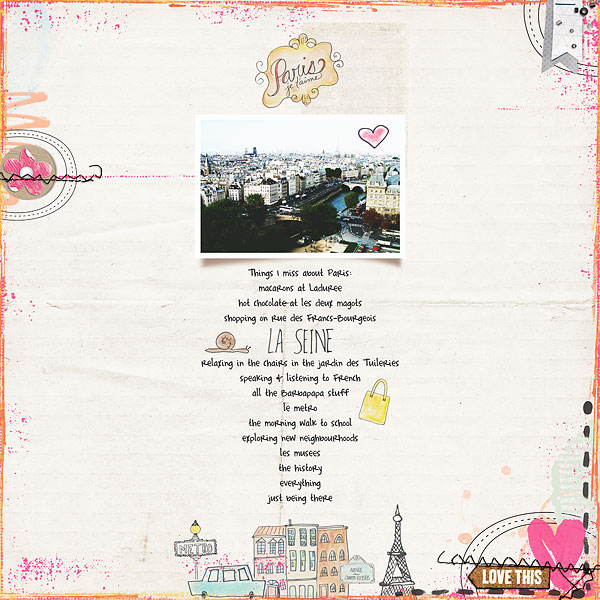 Paris
je t'aime
Things I miss about Paris:
macarons at Laduree
hot chocolate at les deux magots
shopping on rue des Francs-Bourgeois
LA SEINE
relaxing in the chairs in the jardin des Tuileries
speaking & listening to French
all the Barbapapa stuff
le metro
the morning walk to school
exploring new neighbourhoods
les musees
the history
everything
just being there
METRO
LOVE THIS